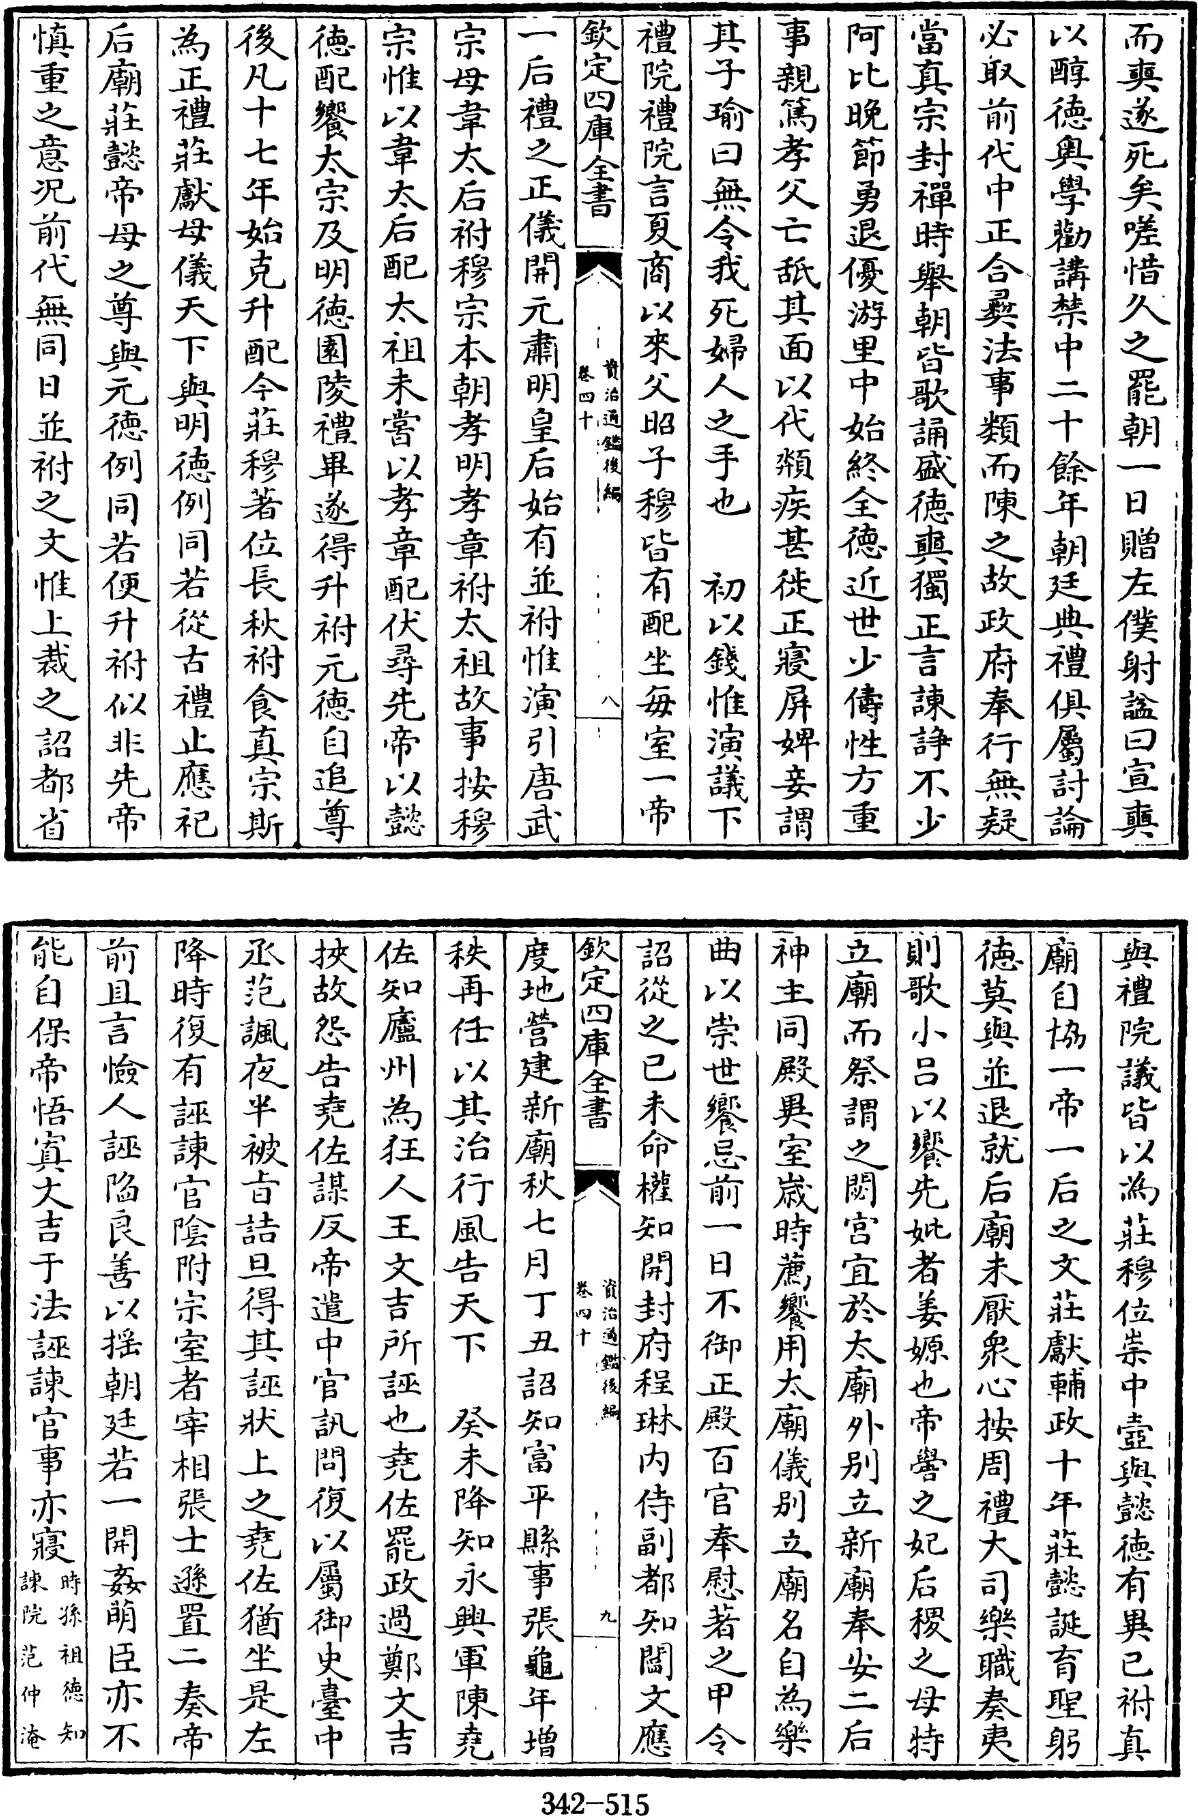 而奭遂死矣嗟惜久之罷朝一日贈左僕射諡曰宣奭
以醇徳奥學勸講禁中二十餘年朝廷典禮俱屬討論
必取前代中正合彛法事類而陳之故政府奉行無疑
當真宗封禪時舉朝皆歌誦盛徳奭獨正言諫諍不少
阿比晚節勇退優游里中始終全徳近世少儔性方重
事親篤孝父亡舐其面以代頮疾甚徙正寢屏婢妾謂
其子瑜曰無令我死婦人之手也　初以錢惟演議下
禮院禮院言夏商以來父昭子穆皆有配坐每室一帝
欽定四庫全書
資治通鑑後編
卷四十
八
一后禮之正儀開元肅明皇后始有並祔惟演引唐武
宗母韋太后祔穆宗本朝孝明孝章祔太祖故事按穆
宗惟以韋太后配太祖未嘗以孝章配伏尋先帝以懿
徳配饗太宗及明徳園陵禮畢遂得升祔元徳自追尊
後凡十七年始克升配今莊穆著位長秋祔食真宗斯
為正禮莊獻母儀天下與明徳例同若從古禮止應祀
后廟莊懿帝母之尊與元徳例同若便升祔似非先帝
慎重之意况前代無同日並祔之文惟上裁之詔都省
與禮院議皆以為莊穆位崇中壼與懿徳有異已祔真
廟自協一帝一后之文莊獻輔政十年莊懿誕育聖躬
徳莫與並退就后廟未厭衆心按周禮大司樂職奏夷
則歌小吕以饗先妣者姜嫄也帝嚳之妃后稷之母特
立廟而祭謂之閟宫宜於太廟外别立新廟奉安二后
神主同殿異室嵗時薦饗用太廟儀别立廟名自為樂
曲以崇世饗忌前一日不御正殿百官奉慰著之甲令
詔從之已未命權知開封府程琳内侍副都知閻文應
欽定四庫全書
資治通鑑後編
卷四十
九
度地營建新廟秋七月丁丑詔知富平縣事張龜年增
秩再任以其治行風告天下　癸未降知永興軍陳堯
佐知廬州為狂人王文吉所誣也堯佐罷政過鄭文吉
挾故怨告堯佐謀反帝遣中官訊問復以屬御史臺中
丞范諷夜半被旨詰旦得其誣狀上之堯佐猶坐是左
降時復有誣諫官陰附宗室者宰相張士遜置二奏帝
前且言憸人誣陷良善以揺朝廷若一開姦萌臣亦不
能自保帝悟寘文吉于法誣諫官事亦寢時孫祖徳知
諫院范仲淹
342-515